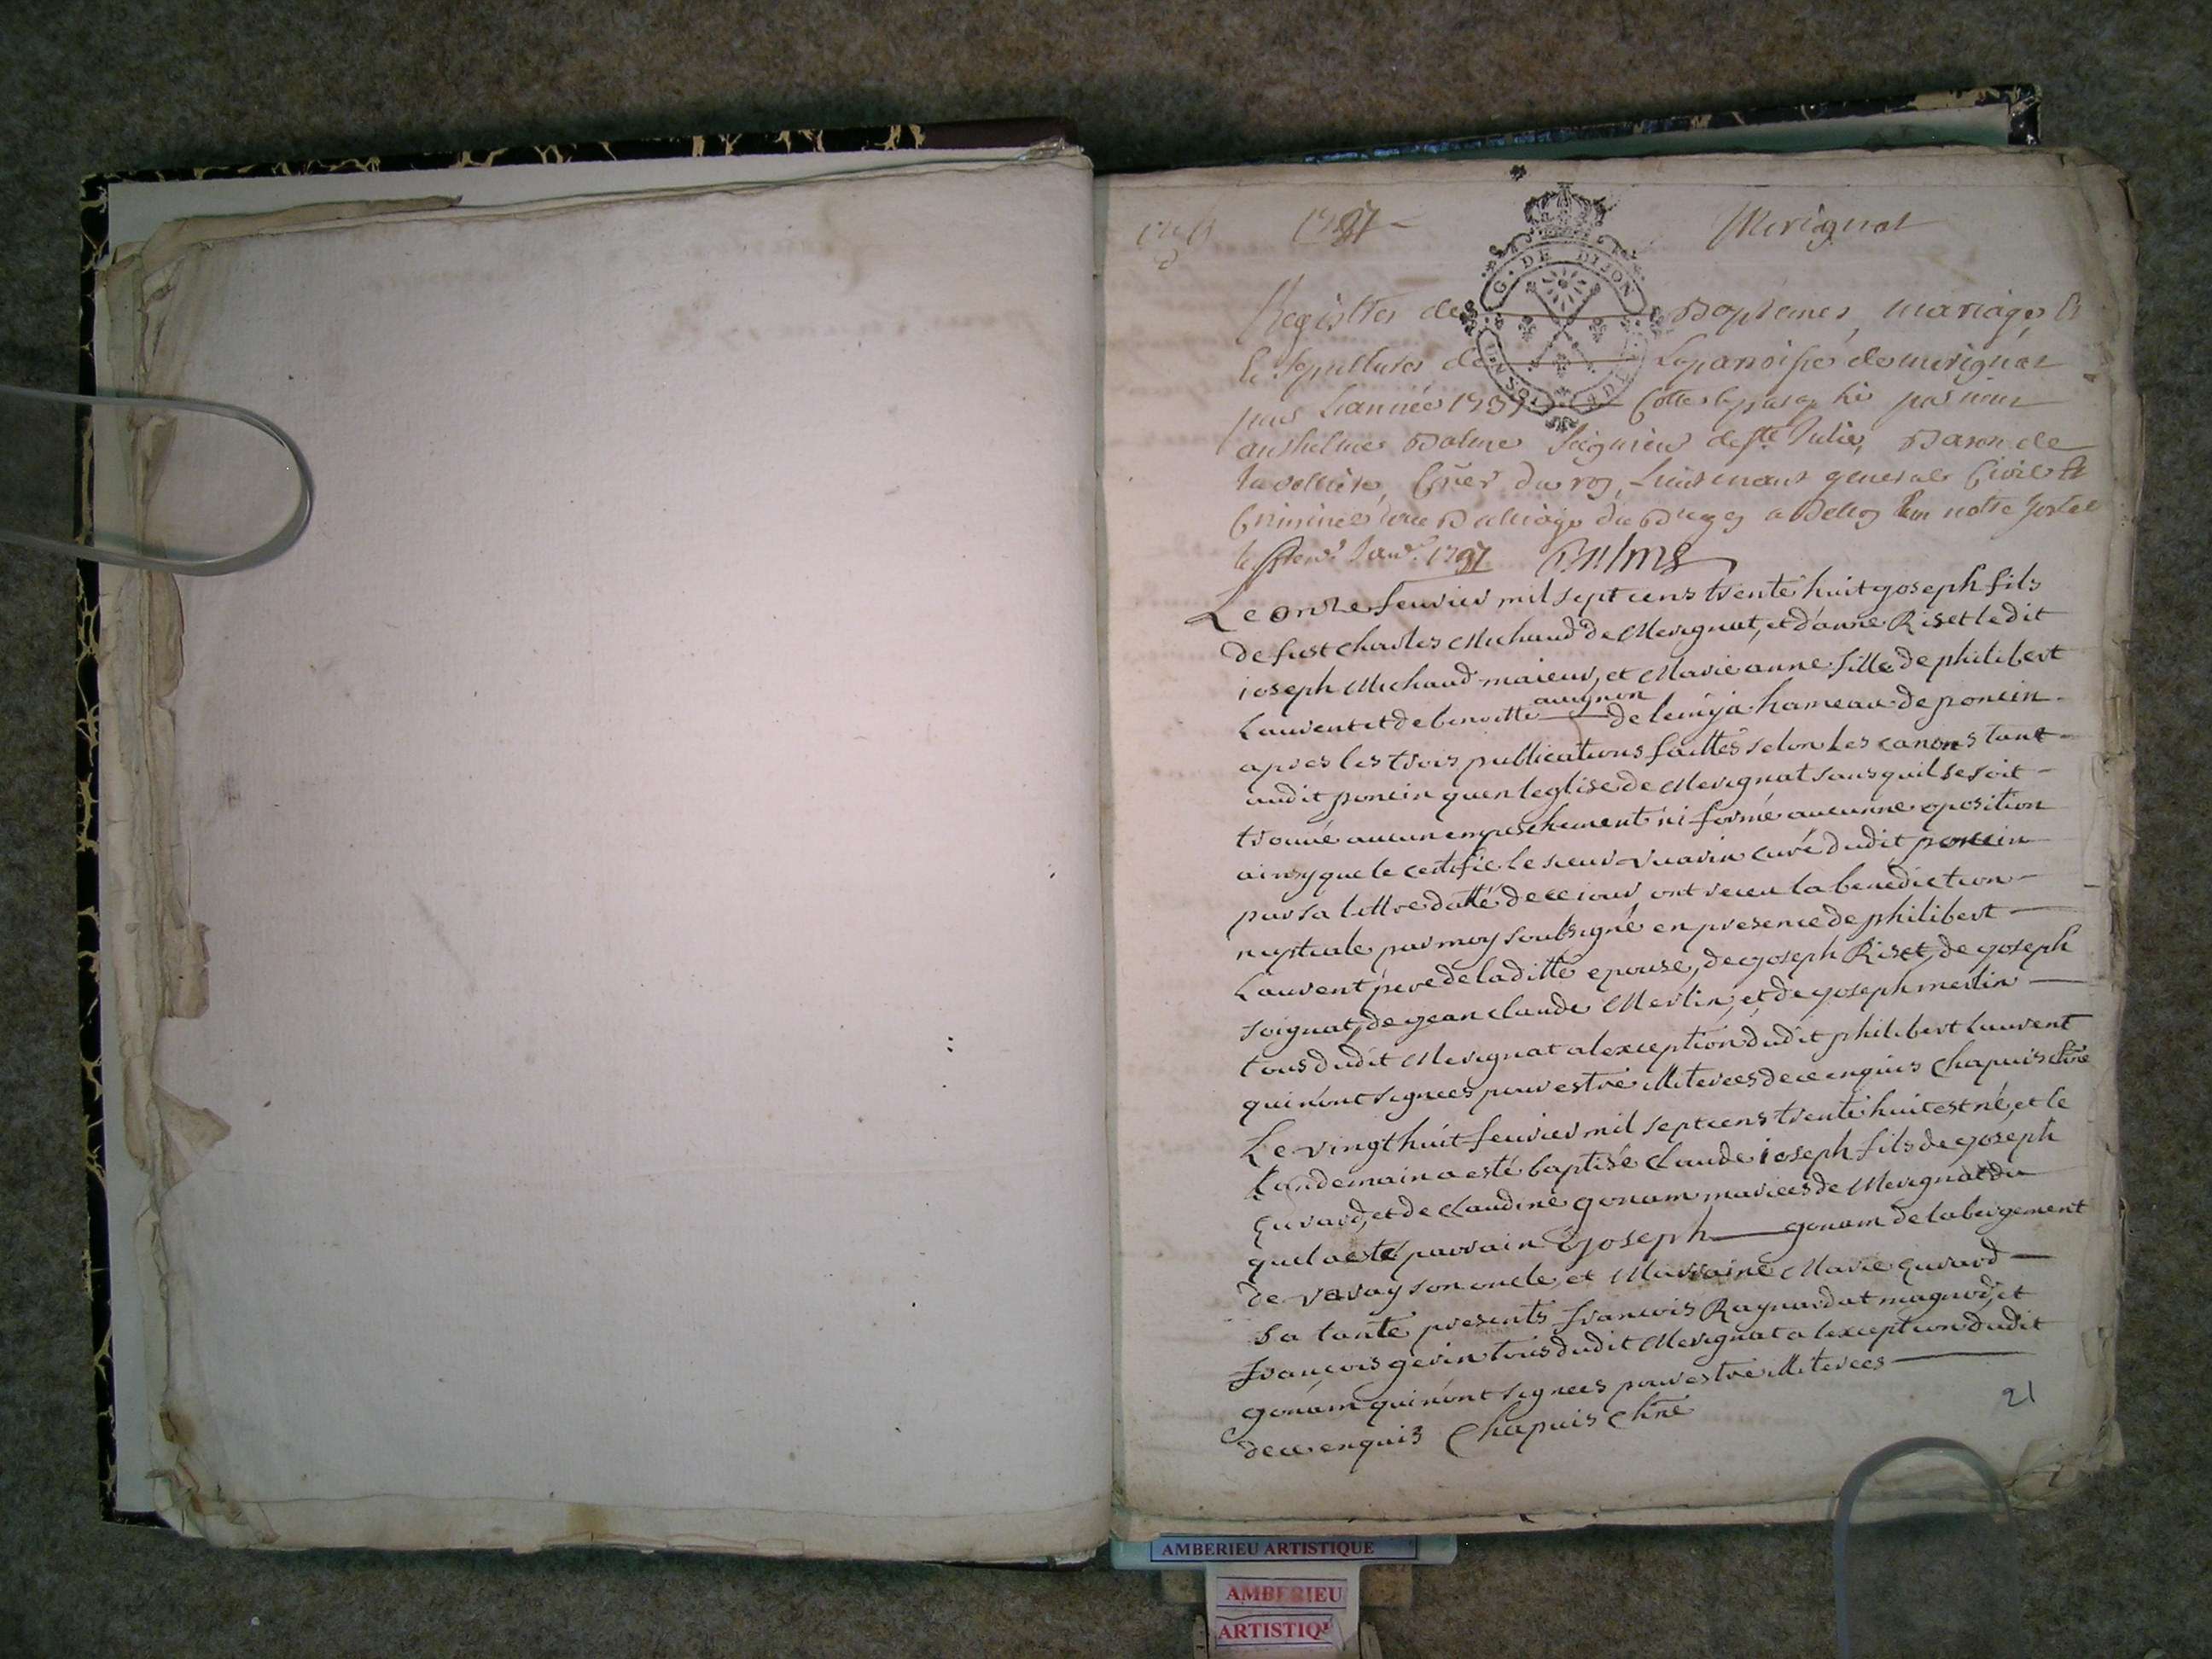 1737 Merignat
G. DE DIJON
Registres des Baptemes, mariages Et
Et Sepultures de La parroisse de merignat
pour L'année 1737 Cotté et paraphé par nous
anthelme Balme Seigneur de Ste Julie, Baron de
Criminel au Balliage du Bugey a Belley En notre hostel
Janv. 1737 Balme
Le onze feuvier mil sept cens trente huit joseph fils
de fust Charles Michaud de Merignat, et d'anne Riset ledit
ioseph Michaud maieur, et Marie anne fille de philibert
auignon
Laurent et de benoitte de leimia hameau de poncin
apres les trois publications faittes selon les canons tant
audit poncin quen leglise de Merignat sans quil se soit
trouvé aucun empeschement ni formé aucunne oposition
ainsy que le certifie le sieur varin curé dudit poncin
par sa lettre datté de ce iour, ont receu la benediction
nuptiale par moy soubsigné en presence de philibert
Laurent pere de laditte epouse, de joseph Riset, de joseph
soignat, de jean claude Merlin, et de joseph merlin
tous dudit Merignat a lexception dudit philibert Laurent
qui n'ont signees pour estre illiterees de ce enquis Chapuis Ctre
Le vingt huit feuvier mil sept cens trente huit est né, et le
Landemain a esté baptisé Claude ioseph fils de joseph
Guvard, et de Claudine gonam mariees de Merignat du
quel a esté parrain joseph gonam de labergement
de varay son oncle, et Marraine Marie Guvard
sa tante presents francois Raynaud at magnod, et
francois gevin tous dudit Merignat a lexception dudit
gonam qui n'ont signees pour estre illiterees
de ce enquis Chapuis Ctre
21
AMBERIEU ARTISTIQUE
AMBERIEU
ARTISTIQ